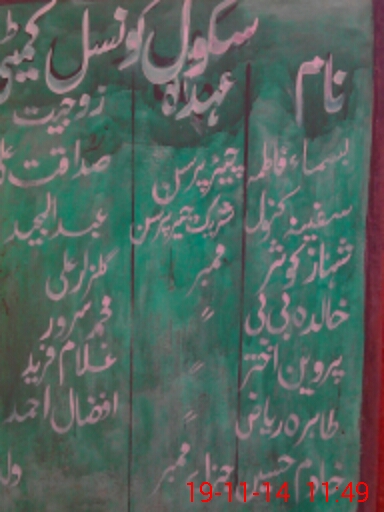 سکول کونسل کمیٹی
نام عہدہ زوجیت
بسماء فاطمہ چیئرپرسن صداقت علی
سفینہ کنول شریک چیئرپرسن عبدالمجید
شہناز کوثر ممبر گلزار علی
خالدہ بی بی 〃 محمد سرور
پروین اختر 〃 غلام فرید
طاہرہ ریاض 〃 افضال احمد
خادم حسین جنرل ممبر
19-11-14 11:49